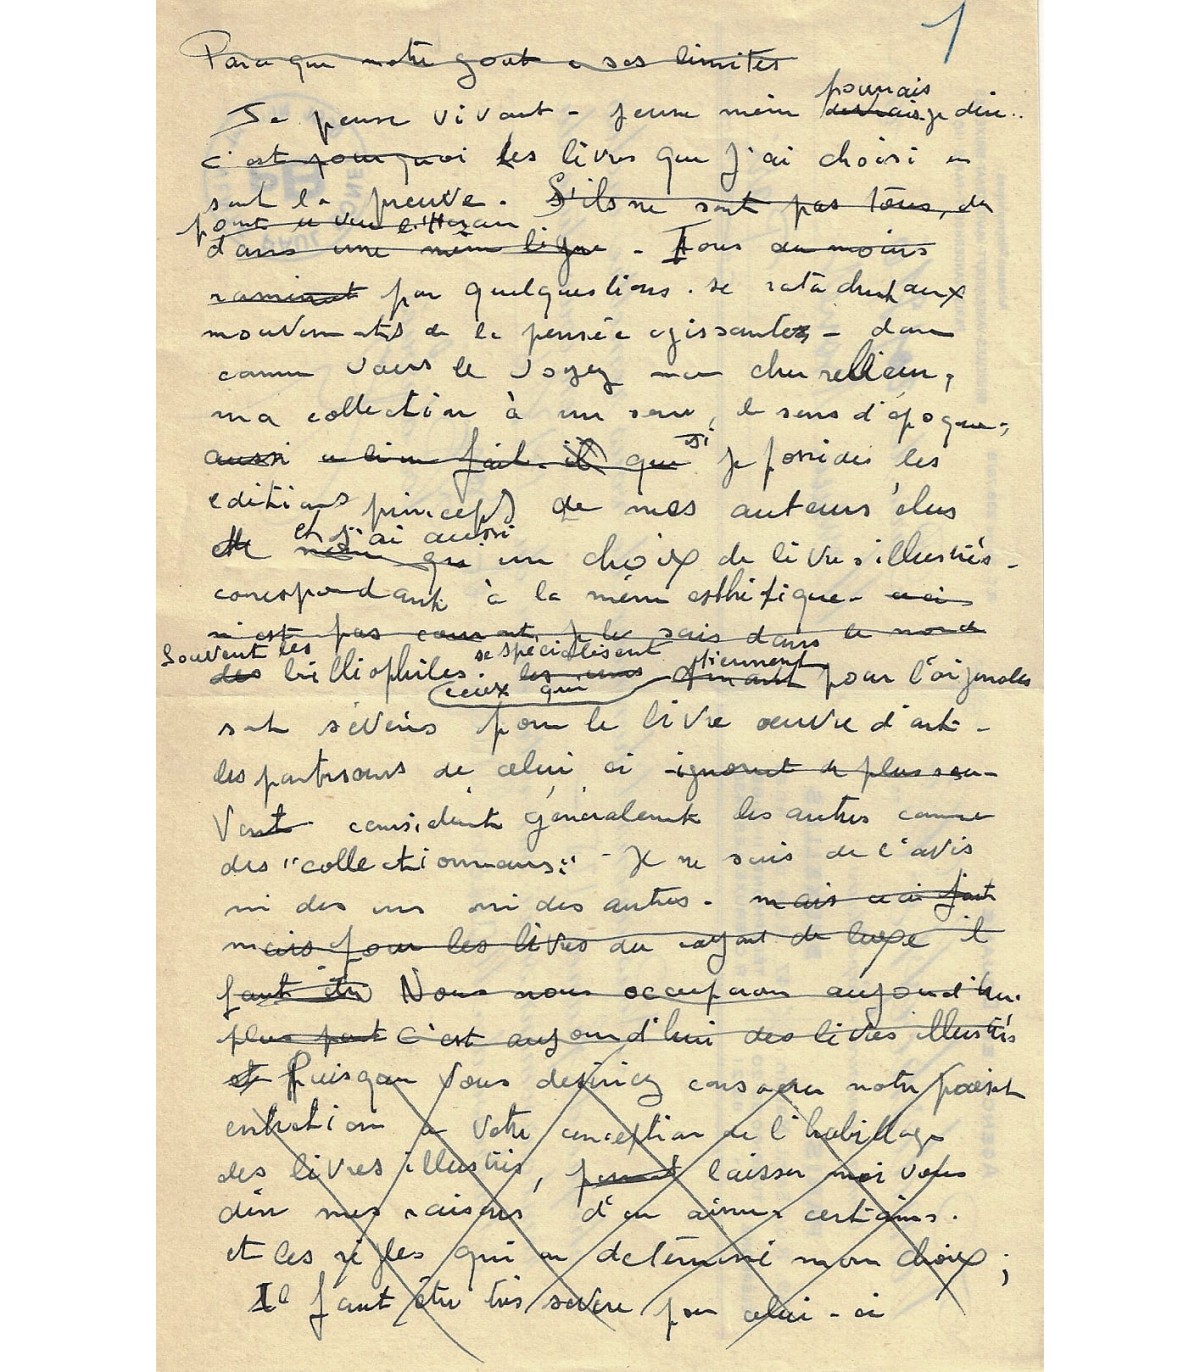 1
Parce que notre goût a ses limites
pourrais
Je pense vivant - jeune même devrais-je dire..
c'est pourquoi les livres que j'ai choisi en
sont la preuve. S'ils ne sont pas tous, du
point de vue
dans une même ligne - Tous du moins
par quelques tions. se ratachent aux
mouvements de la pensée agissante - donc
comme vous le voyez mon cher relieur,
ma collection à un sens, le sens d'époque,
aussi a lieu fait il que si je possides les
editions princeps de mes auteurs élus
et j'ai aussi
même qu un choix de livres illustrés -
correspondant à la même esthétique - ceci
n'est pas courant, je le sais dans le monde
Souvent les se spécialisent tiennent
des bibliophiles. les uns pour l'originales
ceux qui
sont sévères pour le livre oeuvre d'art -
les partisans de celui ci ignorent le plus sou-
vent considèrent généralement les autres comme
des "collectionneurs" - Je ne suis de l'avis
ni des uns ni des autres. mais ceci fait
mais pour les livres du rayont de luxe il
faut être Nous nous occuperons aujourd'hui
plus part C'est aujourd'hui des livres illustrés
et Puisque vous desiriez consacrer notre
entretien à votre conception de l'habillage
des livres illustrés, laisser moi vous
dire mes raisons d'en aimer certains.
et les règles qui en determine mon choix ;
Il faut être très severe pour celui-ci